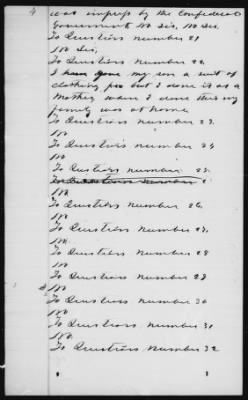 4 was impress by the Confederat
Government No Sir, No Sir.
To Question number 21
No Sir,
To Question number 22
I have gave my son a suit of
clothing, but I done it as a
Mother, when I done this my
family was at home
To Question number 23.
No
To Question number 24
No
To Question number 25.
No
To Question number 26.
No
To Question number 27.
No
To Question number 28
No
To Question number 29
No
To Question number 30
No
To Question number 31
No
To Question number 32